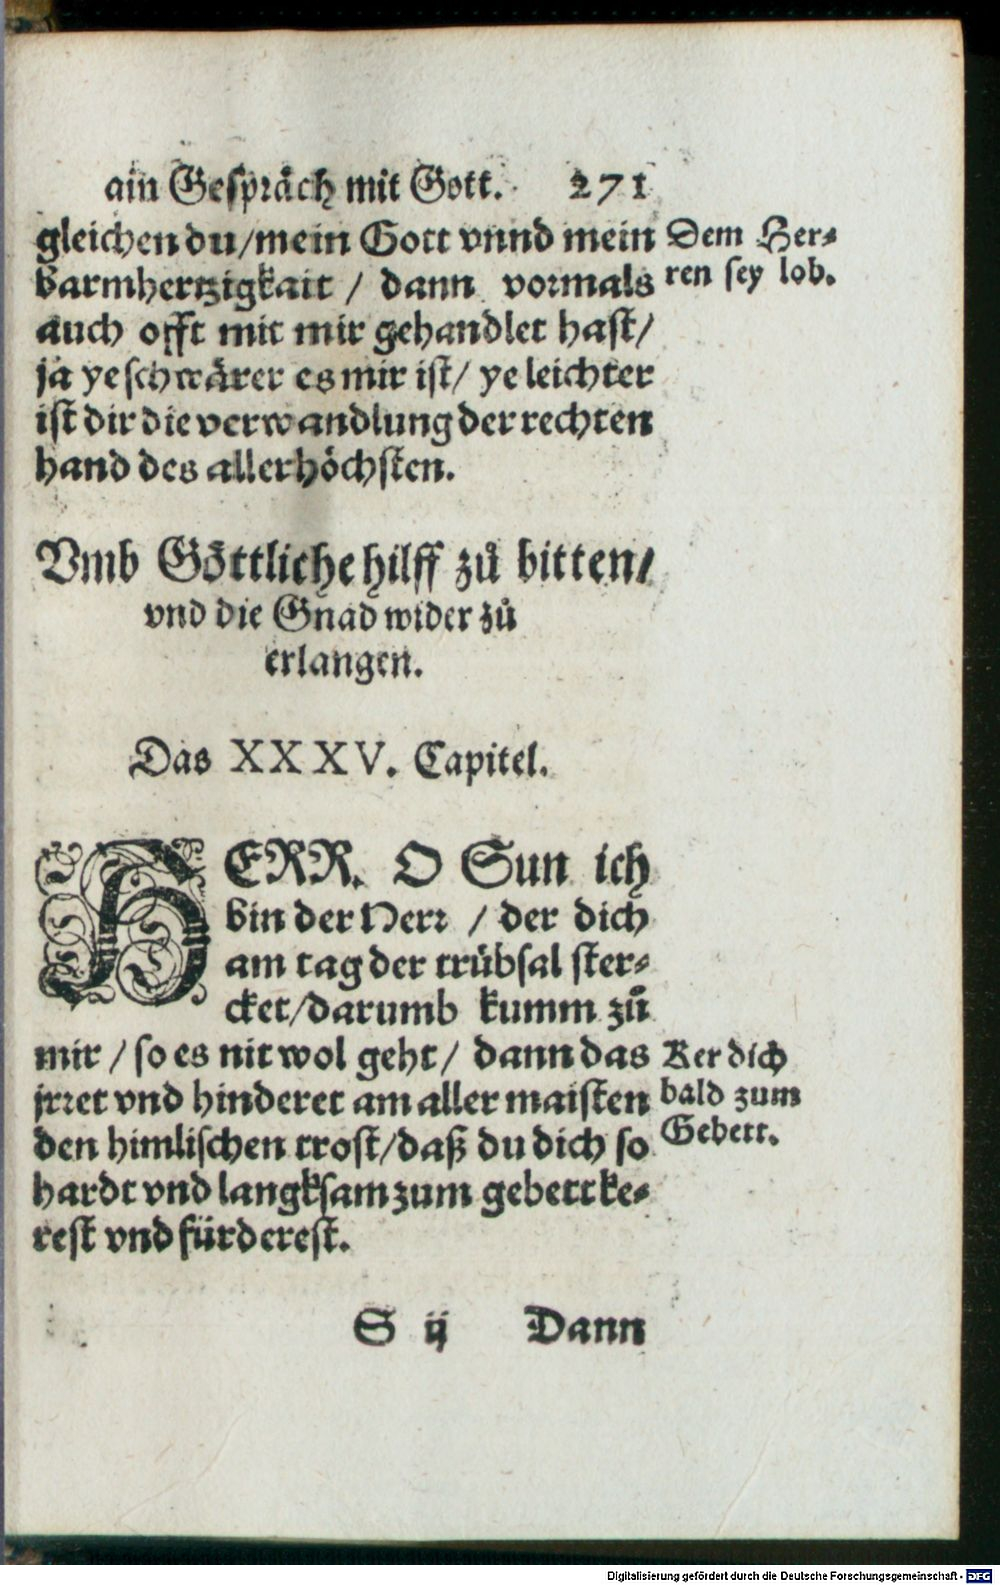 ain Gespräch mit Gott. 271
gleichen du/mein Gott vnnd mein
barmhertzigkait / dann vormals
auch offt mit mir gehandlet hast/
ja ye schwärer es mir ist/ ye leichter
ist dir die verwandlung der rechten
hand des allerhöchsten.
Dem Her⸗
ren sey lob.
Vmb Göttliche hilff zů bitten/
vnd die Gnad wider zů
erlangen.
Das XXXV. Capitel.
HERR. O Sun ich
bin der Herr / der dich
am tag der trübsal ster⸗
cket/darumb kumm zů
mir / so es nit wol geht/ dann das
jrret vnd hinderet am aller maisten
den himlischen trost/daß du dich so
hardt vnd langksam zum gebett ke⸗
rest vnd fürderest.
Ker dich
bald zum
Gebett.
S ij Dann
Digitalisierung gefördert durch die Deutsche Forschungsgemeinschaft - DFG